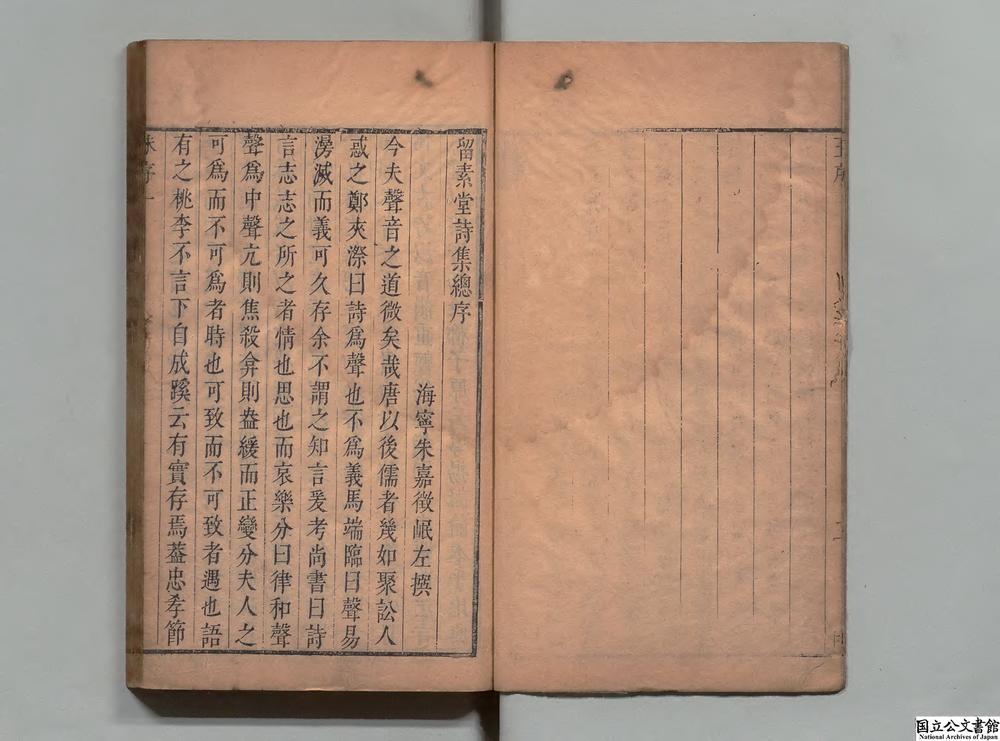 留素堂詩集總序
海寧朱嘉徵岷左撰
今夫聲音之道微矣哉唐以後儒者幾如聚訟人
惑之鄭夾漈曰詩爲聲也不爲義馬端臨曰聲易
湮滅而義可久存余不謂之知言爰考尚書曰詩
言志志之所之者情也思也而哀樂分曰律和聲
聲爲中聲亢則焦殺弇則盎緩而正變分夫人之
可爲而不可爲者時也可致而不可致者遇也語
有之桃李不言下自成蹊云有實存焉葢忠孝節
朱序 一
国立公文書館
National Archives of Japan